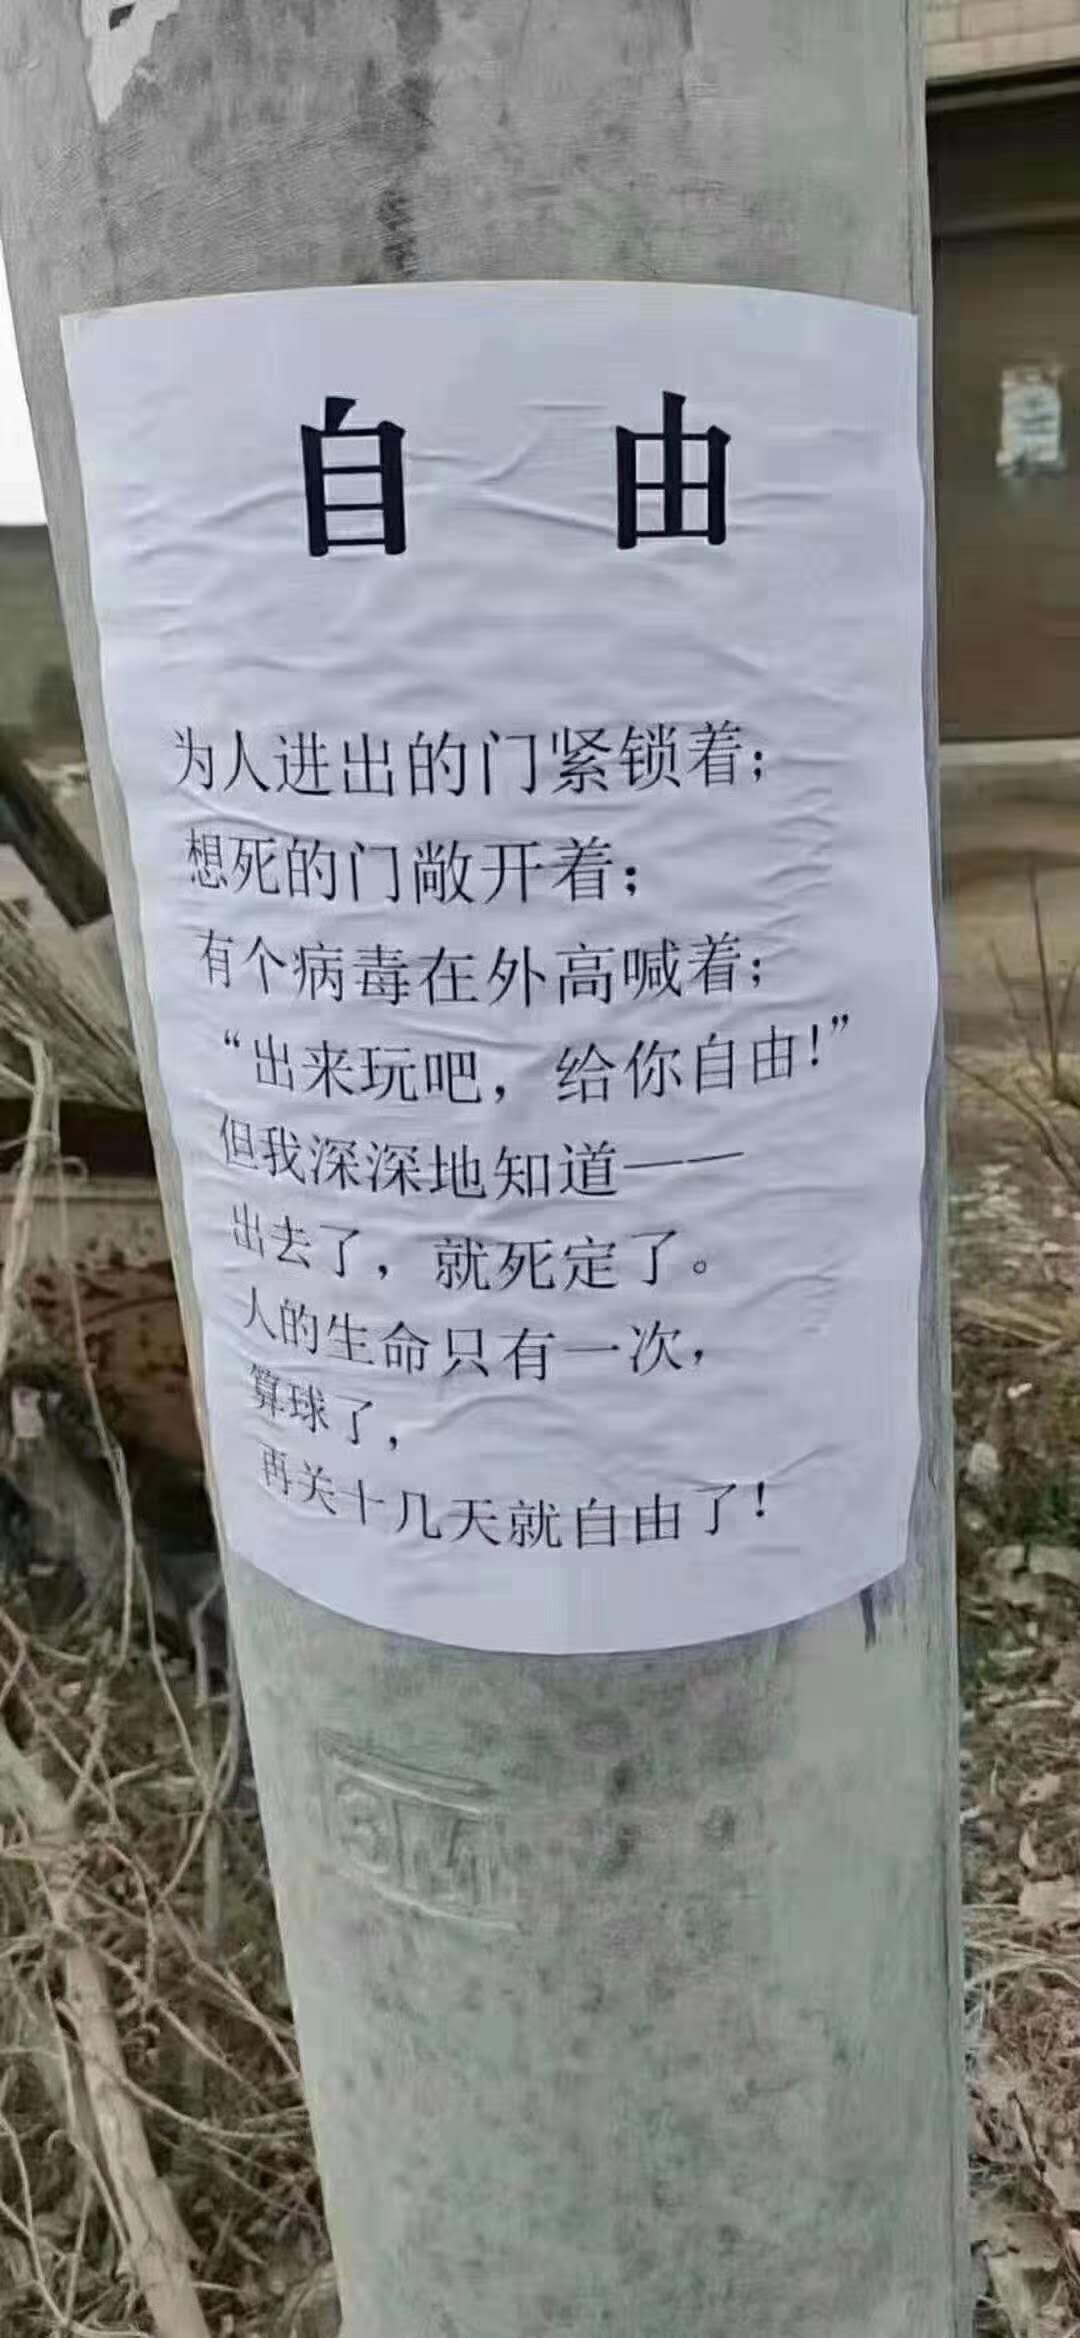 自由
为人进出的门紧锁着；
想死的门敞开着；
有个病毒在外高喊着；
“出来玩吧，给你自由！”
但我深深地知道——
出去了，就死定了。
人的生命只有一次，
算球了，
再关十几天就自由了！